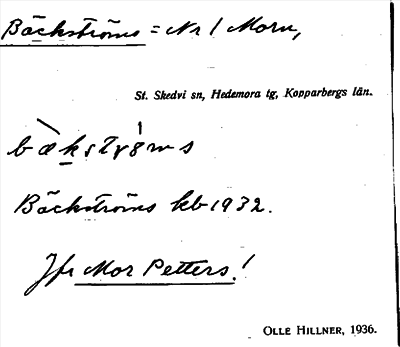 Bäckströms = Nr 1 Morn,
St. Skedvi sn, Hedemora tg, Kopparbergs län.
Bäckströms kb 1932.
Jfr Mor Petters!
OLLE HILLNER, 1936.